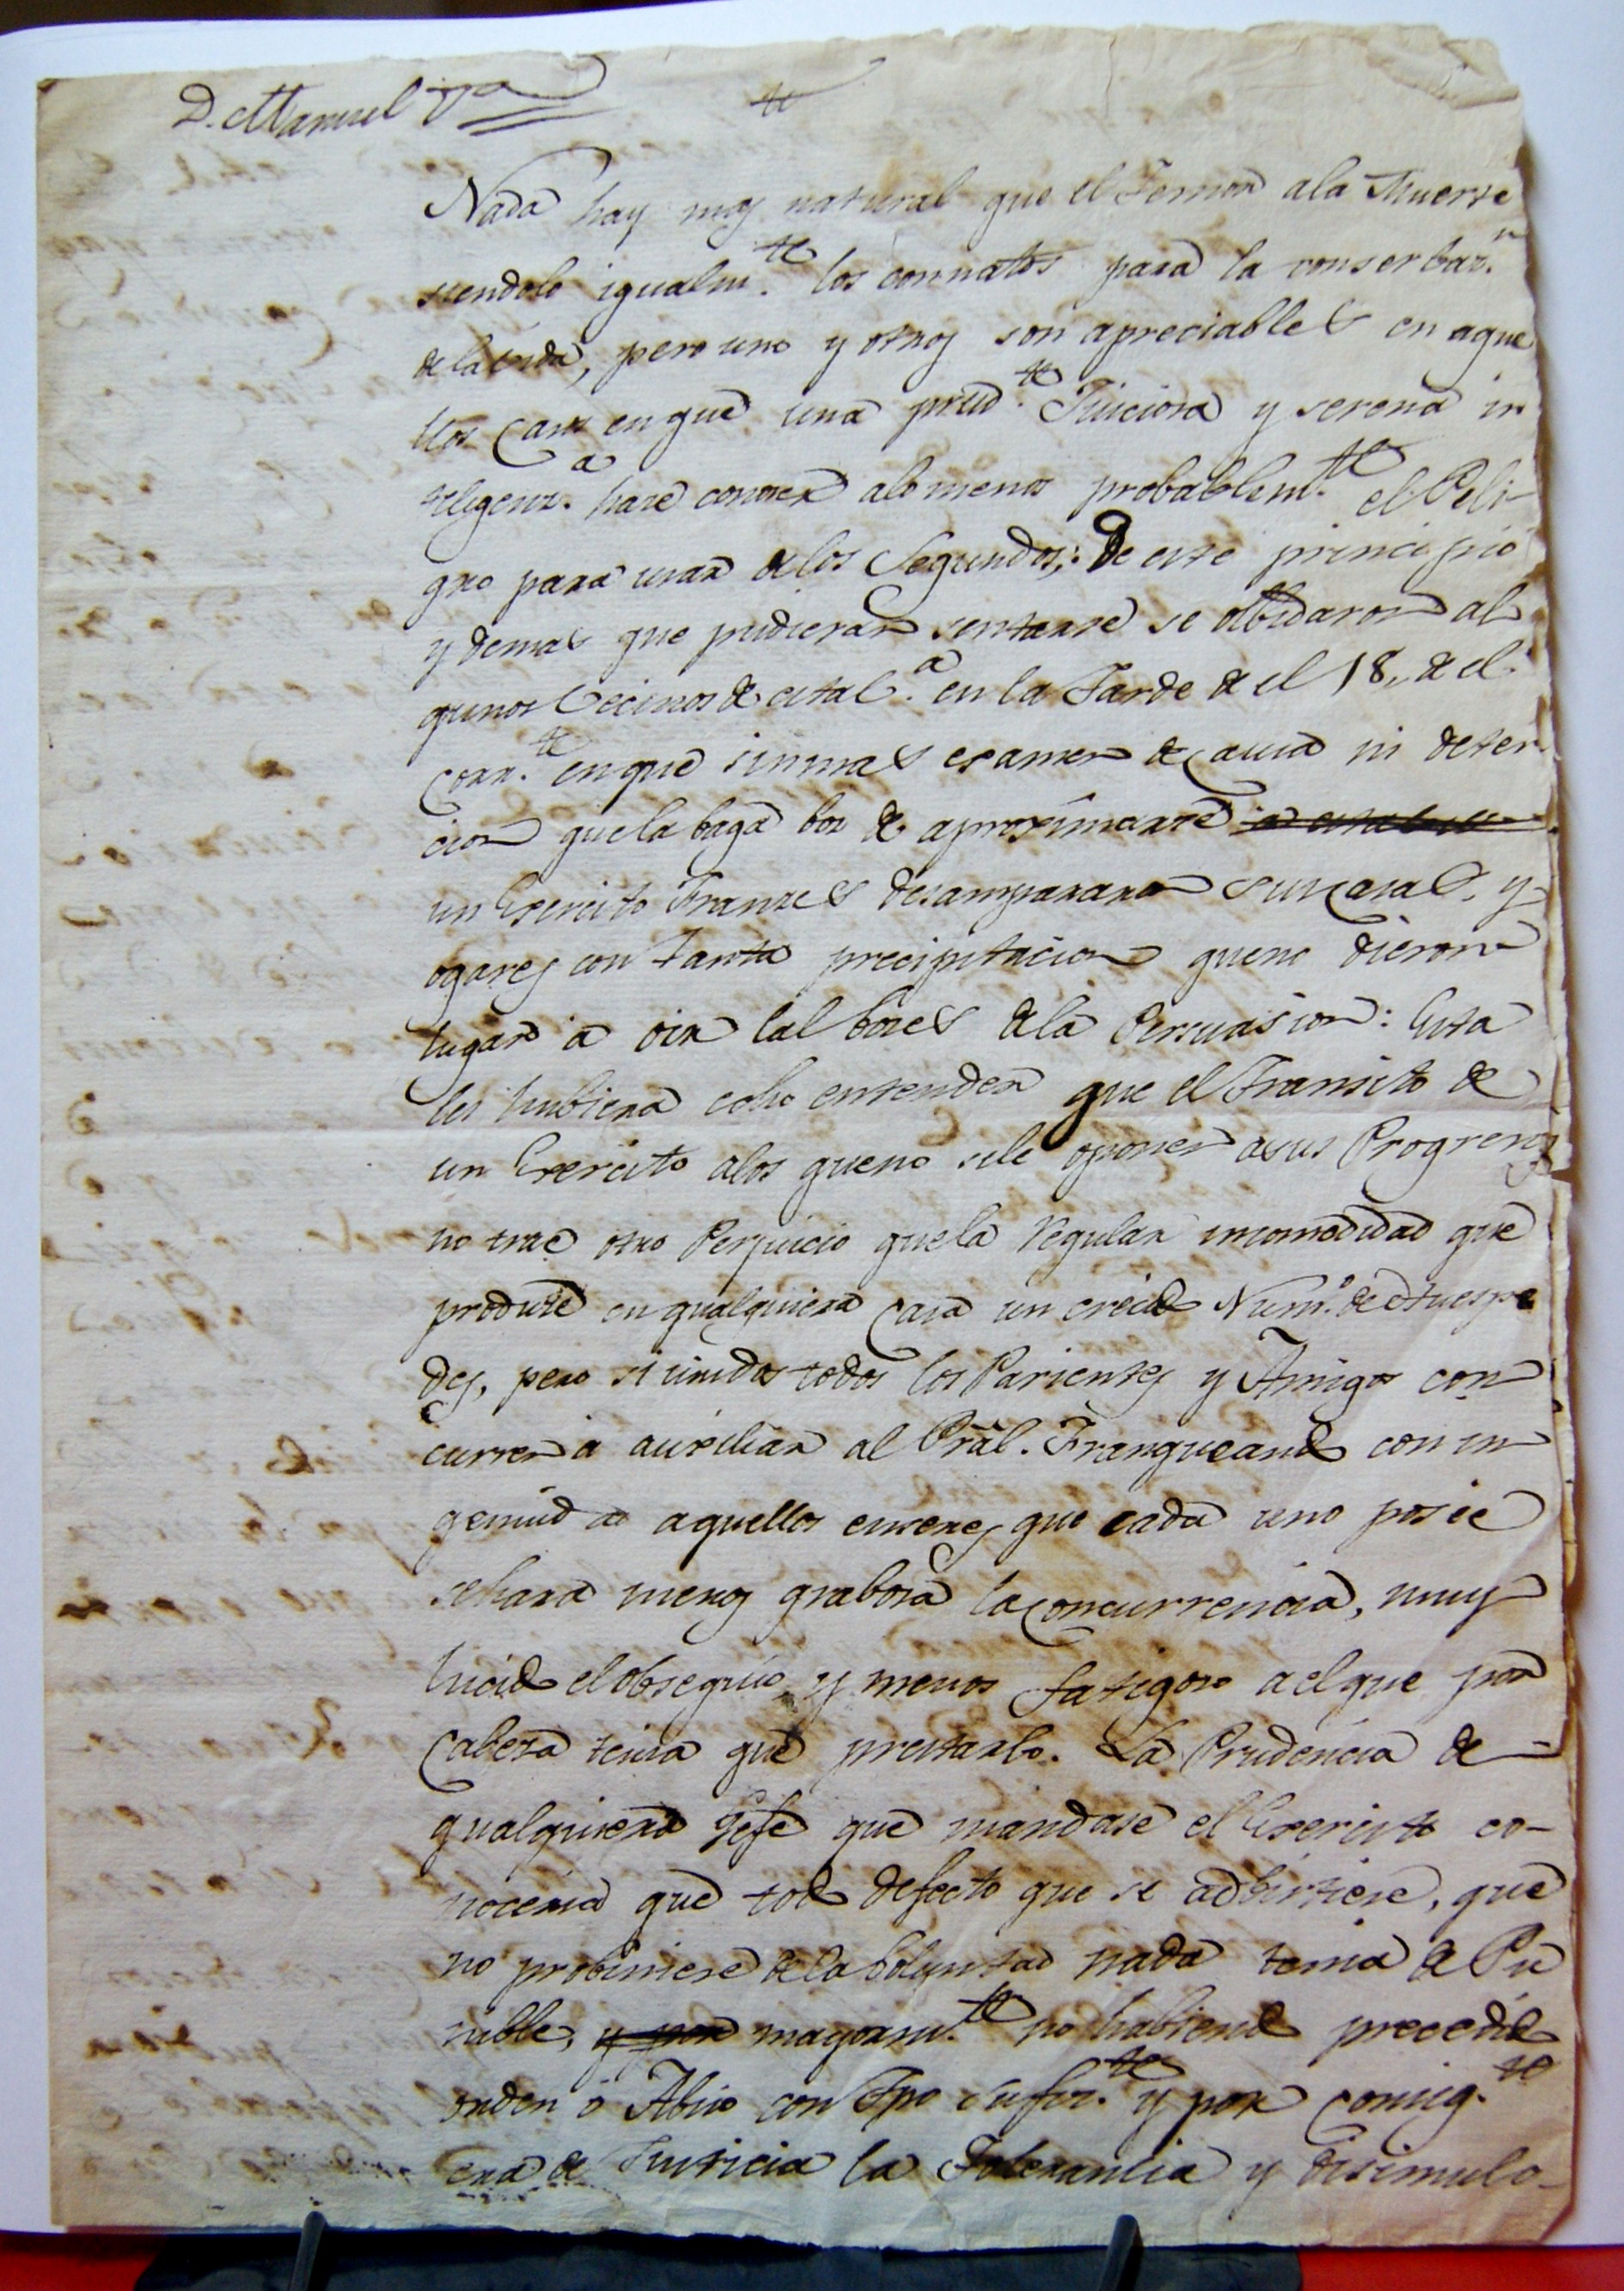 D. Manuel
Nada hay mas natural que el Temor ala Muerte
siendolo igualm.te los connatos para la conserbaz.n
dela bida, pero uno y otros son apreciables en aque
llos Casos en que una prud.te Juiciosa y serena in
teligenz.a haze conozer alo menos probablem.te el Peli-
gro para usar delos Segundos; De este principio
y demas que pudieran sentarse se olbidaron al
gunos Vecinos de esta C.a en la Tarde de el 18, de el
Corr.te en que sin mas examen de causa ni deten
cion que la baga boz de aproximarse
un Exercito Franzes desampararon sus casas, y
ogares con tanta precipitacion que no dieron
lugar a oir las bozes dela Persuasion: Esta
les hubiera echo entender que el Transito de
un Exercito alos que no sele oponen a sus Progresos
no trae otro Perjuicio que la regular incomodidad que
produze en qualquiera Casa un crecido Num.o de Huespe
des, pero si unidos todos los Parientes y Amigos con
curren a auxiliar al Pral. Franqueando con in
genuidad aquellos enseres que cada uno posee
sehara menos grabosa la concurrencia, muy
lucido el obsequio y menos fatigoso a el que por
Cabeza tenia que prestarlo. La Prudencia de
qualquiera Gefe que mandase el Exercito co-
noceria que todo defecto que se adbirtiese, que
no probiniese dela boluntad nada tenia de Pu
nible, y por mayorm.te no habiendo precedido
orden ó Abiso con Tpo sufiz.te y por Consig.te
era de Justicia la Tolerancia y disimulo